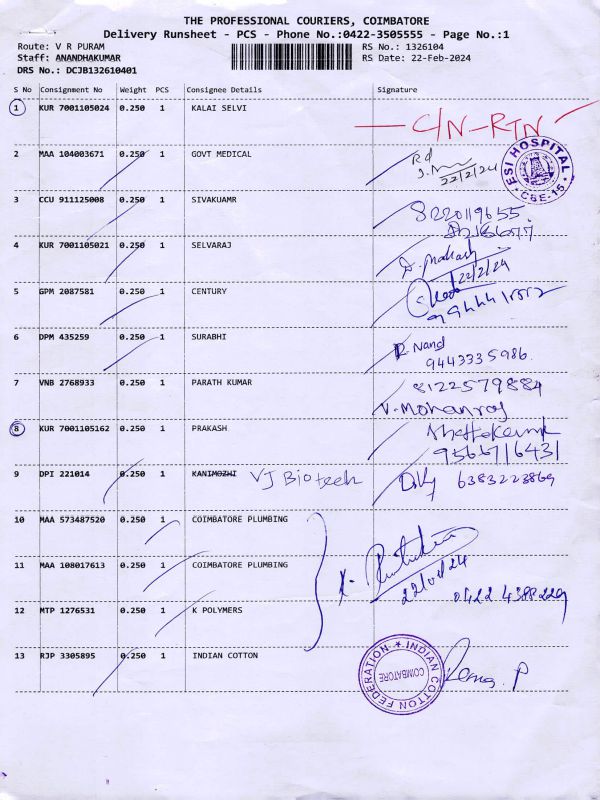 THE PROFESSIONAL COURIERS, COIMBATORE
Delivery Runsheet - PCS - Phone No.:0422-3505555 - Page No.:1
Route: V R PURAM
RS No.: 1326104
Staff: ANANDHAKUMAR
RS Date: 22-Feb-2024
DRS No.: DCJB132610401
S No Consignment No Weight PCS Consignee Details Signature
1 KUR 7001105024 0.250 1 KALAI SELVI C/N-RTN
2 MAA 104003671 0.250 1 GOVT MEDICAL Rd
22/2/24
ESI HOSPITAL
CBE-15
3 CCU 911125008 0.250 1 SIVAKUAMR 8220119655
4 KUR 7001105021 0.250 1 SELVARAJ D. prakash
22/2/24
5 GPM 2087581 0.250 1 CENTURY
6 DPM 435259 0.250 1 SURABHI R. Nand
9443335986.
7 VNB 2768933 0.250 1 PARATH KUMAR 8122579884
V. Mohanraj
8 KUR 7001105162 0.250 1 PRAKASH
9566716431
9 DPI 221014 0.250 1 KANIMOZHI VJ Biotech 6383223869
10 MAA 573487520 0.250 1 COIMBATORE PLUMBING
11 MAA 108017613 0.250 1 COIMBATORE PLUMBING
22/02/24
0422 4388229
12 MTP 1276531 0.250 1 K POLYMERS
13 RJP 3305895 0.250 1 INDIAN COTTON
INDIAN COTTON FEDERATION
COIMBATORE